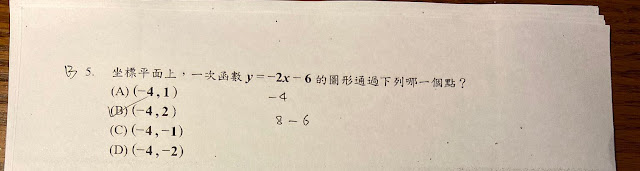 B 5. 坐標平面上，一次函數 y=−2x−6 的圖形通過下列哪一個點？
(A) (−4,1)
−4
(B) (−4,2)
8−6
(C) (−4,−1)
(D) (−4,−2)